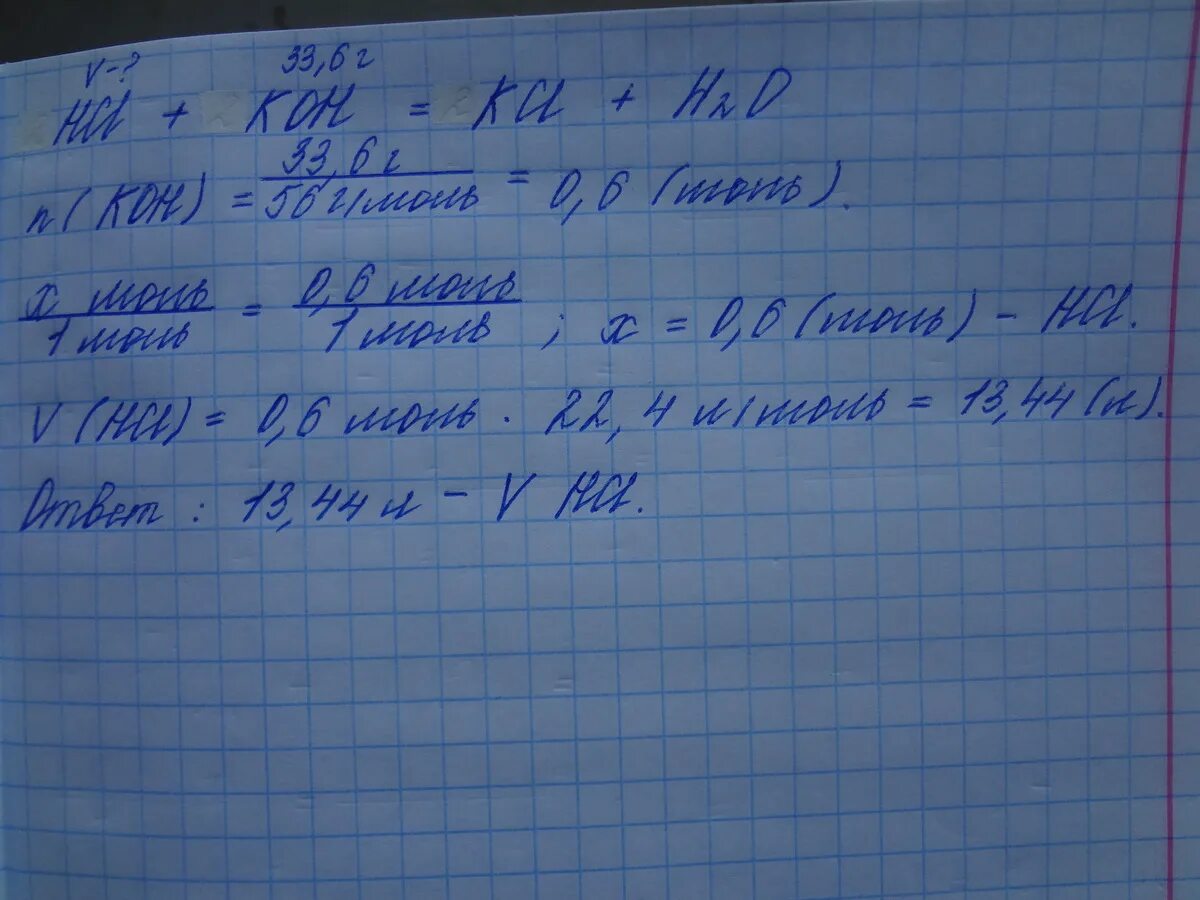 V-? 33,6 г
HCl + KOH = KCl + H₂O
n(KOH) = 33,6 г / 56 г/моль = 0,6 (моль).
x моль / 1 моль = 0,6 моль / 1 моль ; x = 0,6 (моль) - HCl.
V (HCl) = 0,6 моль · 22,4 л/моль = 13,44 (л).
Ответ : 13,44 л - V HCl.